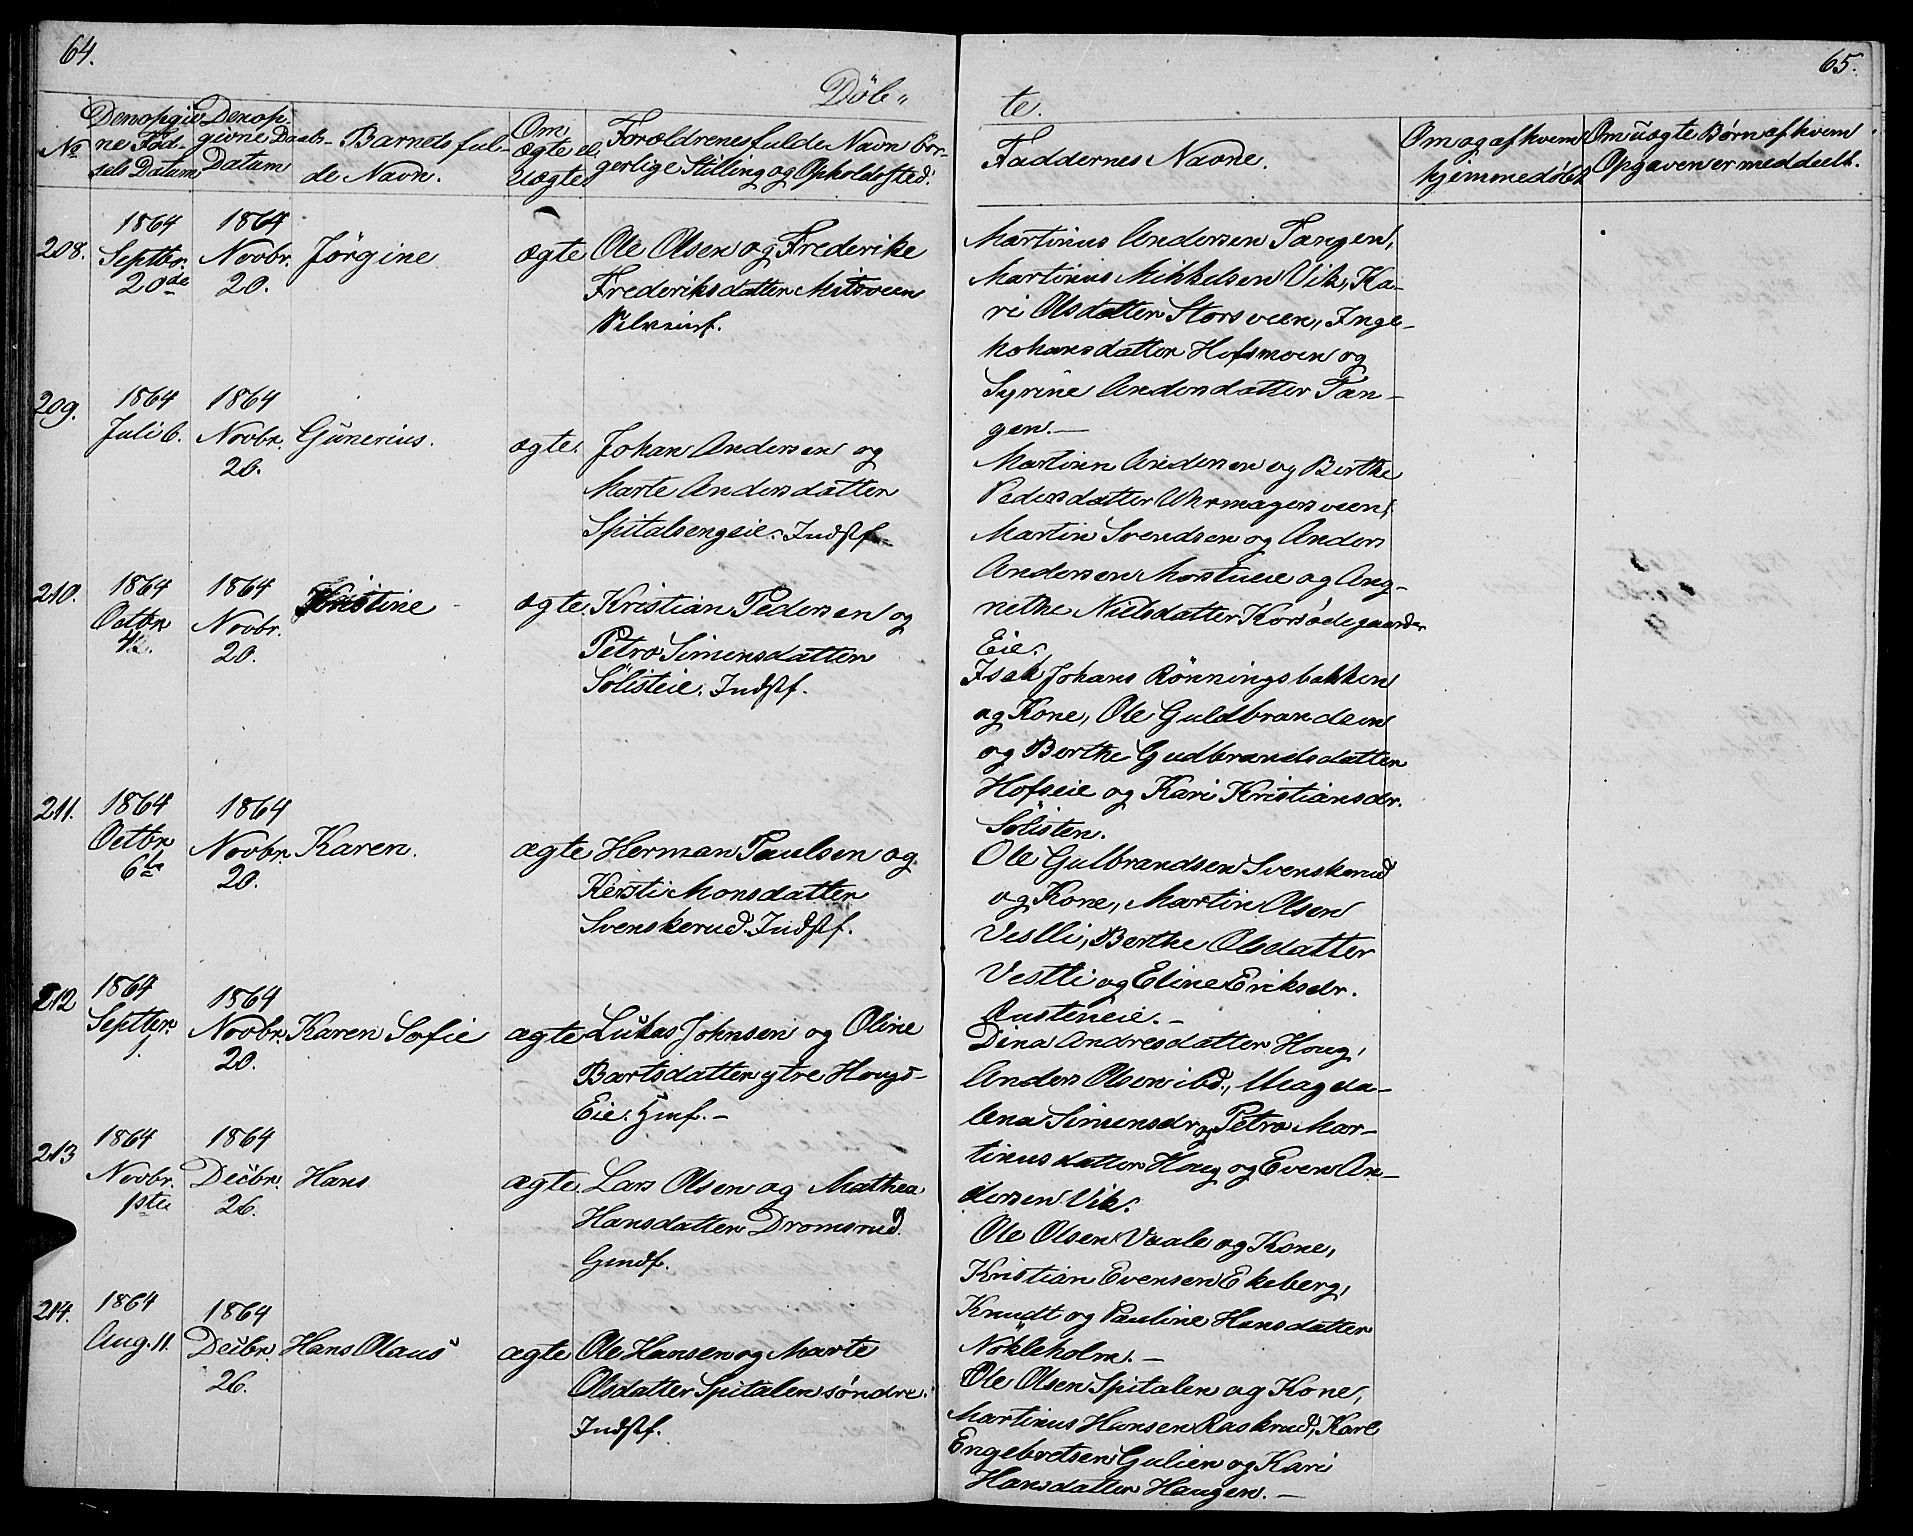 64.
65.
Döb-
te.
No
Den opgiv-
ne Föd-
sels Datum
Den op-
givne Daabs-
Datum
Barnets ful-
de Navn.
Om
ægte el.
Uægte
Forældrenes fulde Navn bor-
gerlige Stilling og Opholdssted.
Faddernes Navne.
Om og af hvem
hjemmedøbt
Om uægte Børn af hvem
Opgaven er meddeelt.
208.
1864
Septbr.
20de
1864
Novbr.
20.
Jörgine
ægte
Ole Olsen og Frederike
Frederiksdatter
Martinus Andersen Tangen,
Martinus Mikkelsen Vik, Ka-
ri Olsdatter Storsveen, Inge-
Johansdatter Hofsmoen og
Syrine Andersdatter Tan-
gen.-
209.
1864
Juli 6.
1864
Novbr.
20.
Gunerius.
ægte.
Johan Andersen og
Marte Andersdatter
Spitalsengeie. Indstf.
Martinn Andersen og Berthe
Pedersdatter Uhrmagersveen,
Martin Svendsen og Anders
Andersen Morstueie og Ang-
nethe Nielsdatter Korsödegaards
Eie.
210.
1864
Octbr.
4de
1864
Novbr.
20.
Kristine
ægte
Kristian Pedersen og
Petra Simensdatter
Sölisteie. Indstf.
Isak Johans Rönningsbakken
og Kone, Ole Guldbrandsen
og Berthe Gudbrandsdatter
Hofseie og Kari Kristiansdr.
Sölisten.
211.
1864
Octbr
6te
1864
Novbr.
20.
Karen.
ægte
Herman Paulsen og
Kersti Monsdatter
Svenskerud. Indstf.
Ole Gulbrandsen Svenskerud
og Kone, Martin Olsen
Vestli, Berthe Olsdatter
Vestli og Eline Eriksdr.
Austeneie.-
212
1864
Septbr.
1.
1864
Novbr.
20.
Karen Sofie
ægte
Lukas Johnsen og Oline
Bartsdatter ytre Hougs-
Eie.
Dina Andresdatter Houg,
Anders Olsen ibd., Magda-
lena Simensdr og Petra Mar-
tinusdatter Houg og Even An-
dersen Vik.
213
1864
Novbr.
1ste
1864
Decbr.
26.
Hans
ægte
Lars Olsen og Mathea
Hansdatter Dromsrud.
Ole Olsen Vaale og Kone,
Kristian Evensen Ekeberg,
Knudt og Pauline Hansdatter
Nökleholm.-
214.
1864
Aug. 11.
1864
Decbr.
26.
Hans Olaus
ægte
Ole Hansen og Marte
Olsdatter Spitalen söndre.
Indstf.
Ole Olsen Spitalen og Kone,
Martinus Hansen Raskrud, Karl
Engebretsen Gulien og Kari
Hansdatter Haugen.-